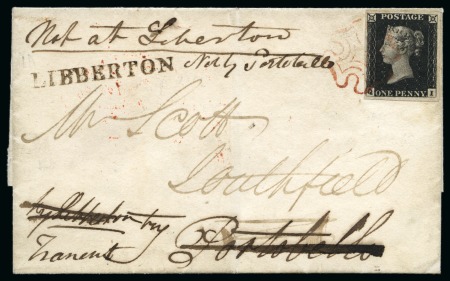 Not at Liberton
POSTAGE
LIBBERTON Try Portobello
ONE PENNY
Mr Scott
Southfield
by Libberton try
Tranent Portobello